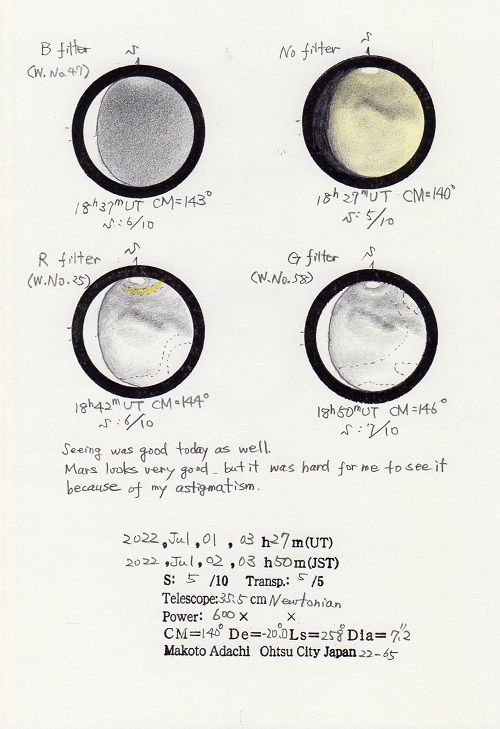 B filter
(W.No.47)
S
18h37mUT CM=143°
S:6/10
No filter
S
18h29mUT CM=140°
S:5/10
R filter
(W.No.25)
S
18h42mUT CM=144°
S:6/10
G filter
(W.No.58)
S
18h50mUT CM=146°
S:7/10
Seeing was good today as well.
Mars looks very good. but it was hard for me to see it
because of my astigmatism.
2022,Jul,01, 03 h27m(UT)
2022,Jul,02,03 h50m(JST)
S: 5 /10 Transp.: 5 /5
Telescope:35.5 cm Newtonian
Power: 600× ×
CM=140° De=-20.0 Ls=258° Dia=7."2
Makoto Adachi Ohtsu City Japan 22-65